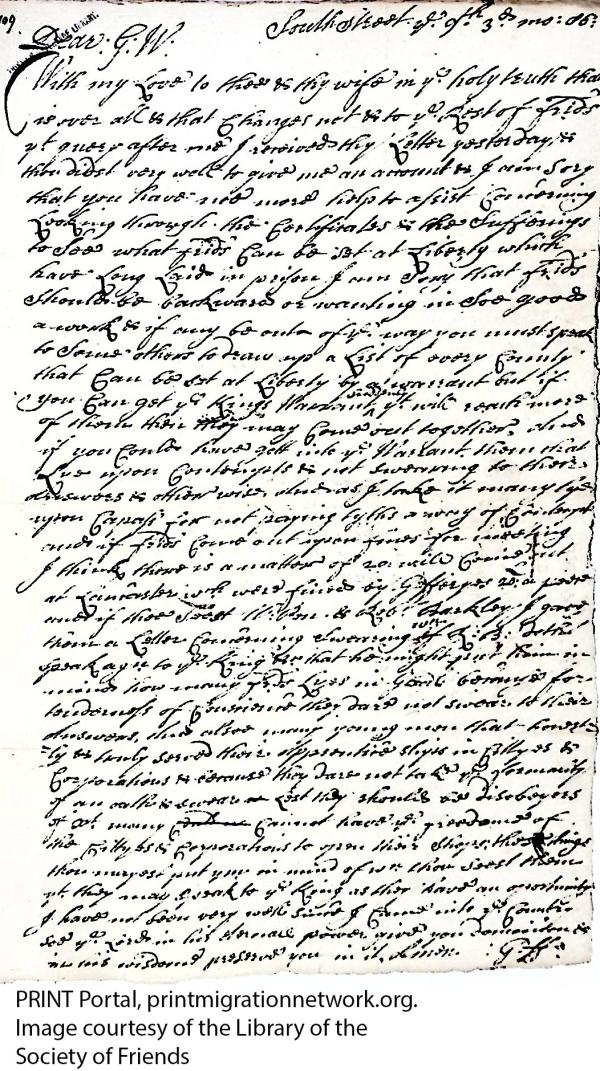 109
Dear. G. W.
Southstreet ye 9th 3d mo: 86:
With my Love to thee & thy wife in ye holy truth that
is over all & that Changes not & to ye Rest of frids
yt query after me I received thy Letter yesterday, &
thou didst very well to give me an account & I am sory
that you have noe more help to asist Concerning
Looking through the Certificates & the Sufferings
to See what frids Can be set at Liberty which
have Long Laid in prison I am Sory that frids
Should be backward or wanting in Soe good
a work & if any be out of ye way you must speak
to Some others to draw up a List of every County
that Can be set at Liberty by warrant but if
you Can get ye Kings Warrant yt will reach more
of them then they may Come out together, and
if you Could have gott into ye Warrant them that
Lye upon Contempts & not swearing to their
answers & other wise, and as I take it many lye
upon Capass for not paying tyths a way of Contempt
and if frids Come out upon fines for meeting
I think there is a matter of 20: will Come out
at Lancaster wch were fined by Gefferyes 20 a peece
and if thee Seest W: Pen & Rob: Barkley I gave
them a Letter Concerning Swearing
speak again to ye King & that he might put them in
minde how many frids Lyes in Goale because for
tenderness of Consience they dare not swear to their
answers, and alsoe many young men that honest
ly & truly served their apprentice ships in Cittyes &
Corporations & because they dare not take ye formarity
of an oath & swear Lest they should be disobeyers
of Xt many Cannot have ye freedome of
the Cittyes & Corporations to open their Shops; these things
thou mayest put you in mind of wn thou seest them
yt they may speak to ye King as they have an oportunity
I have not been very well since I Came into ye Country
soe ye Lord in his eternall power give you dominion &
in his wisdome preserve you in it, Amen. G ff:
PRINT Portal, printmigrationnetwork.org.
Image courtesy of the Library of the
Society of Friends